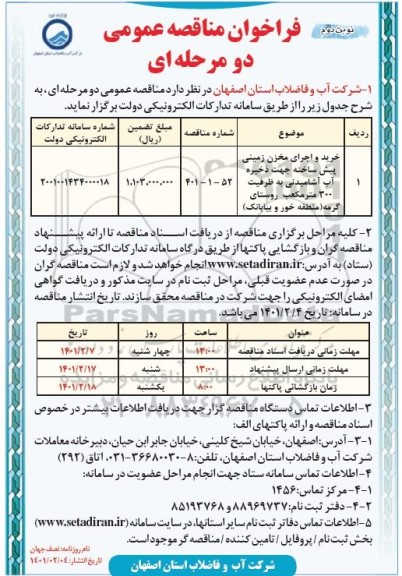 نوبت دوم
فراخوان مناقصه عمومی
دو مرحله ای
۱-شرکت آب و فاضلاب استان اصفهان در نظر دارد مناقصه عمومی دو مرحله ای، به
شرح جدول زیر را از طریق سامانه تدارکات الکترونیکی دولت برگزار نماید.
ردیف موضوع شماره مناقصه مبلغ تضمین (ریال) شماره سامانه تدارکات الکترونیکی دولت
۱ خرید و اجرای مخزن زمینی
پیش ساخته جهت ذخیره
آب آشامیدنی به ظرفیت
۳۰۰ مترمکعب روستای
گرمه(منطقه خور و بیابانک)
۵۲-۱-۴۰۱ ۱.۱۰۳.۰۰۰.۰۰۰ ۲۰۰۱۰۰۱۴۳۴۰۰۰۰۱۸
۲- کلیه مراحل برگزاری مناقصه از دریافت اسناد مناقصه تا ارائه پیشنهاد
مناقصه گران و بازگشایی پاکتها از طریق درگاه سامانه تدارکات الکترونیکی دولت
(ستاد) به آدرس: www.setadiran.ir انجام خواهد شد و لازم است مناقصه گران
در صورت عدم عضویت قبلی، مراحل ثبت نام در سایت مذکور و دریافت گواهی
امضای الکترونیکی را جهت شرکت در مناقصه محقق سازند. تاریخ انتشار مناقصه
در سامانه: تاریخ ۱۴۰۱/۲/۴ می باشد.
عنوان ساعت روز تاریخ
مهلت زمانی دریافت اسناد مناقصه ۱۴:۰۰ چهار شنبه ۱۴۰۱/۲/۷
مهلت زمانی ارسال پیشنهاد ۱۳:۰۰ شنبه ۱۴۰۱/۲/۱۷
زمان بازگشائی پاکتها ۸:۰۰ یکشنبه ۱۴۰۱/۲/۱۸
۳-اطلاعات تماس دستگاه مناقصه گزار جهت دریافت اطلاعات بیشتر در خصوص
اسناد مناقصه و ارائه پاکتهای الف:
۳-۱- آدرس:اصفهان، خیابان شیخ کلینی، خیابان جابر ابن حیان، دبیرخانه معاملات
شرکت آب و فاضلاب استان اصفهان، تلفن:۸-۳۶۶۸۰۰۳۰-۰۳۱، اتاق (۲۹۲)
۴-اطلاعات تماس سامانه ستاد جهت انجام مراحل عضویت در سامانه:
۴-۱- مرکز تماس:۱۴۵۶
۴-۲- دفتر ثبت نام:۸۸۹۶۹۷۳۷ و ۸۵۱۹۳۷۶۸
۵-اطلاعات تماس دفاتر ثبت نام سایر استانها، در سایت سامانه (www.setadiran.ir)
بخش ثبت نام / پروفایل / تامین کننده / مناقصه گر موجود است.
نام روزنامه: نصف جهان
تاریخ انتشار: ۱۴۰۱/۰۲/۰۴
شرکت آب و فاضلاب استان اصفهان